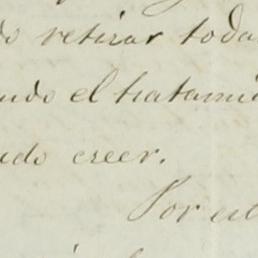 do retirar toda
ndo el tratami
udo creer.
Por est